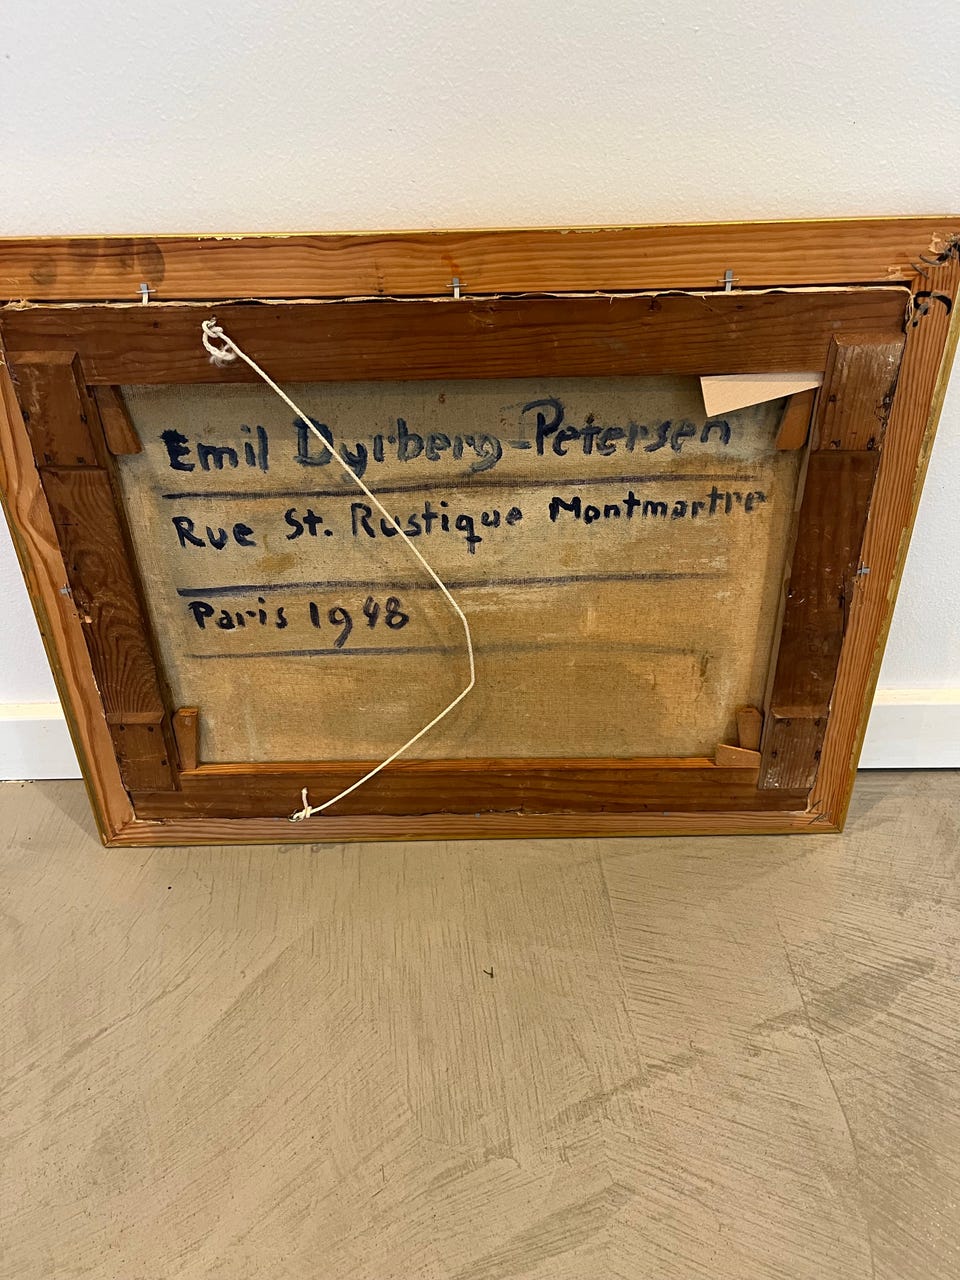 Emil Dyrberg-Petersen
Rue St. Rustique Montmartre
Paris 1948